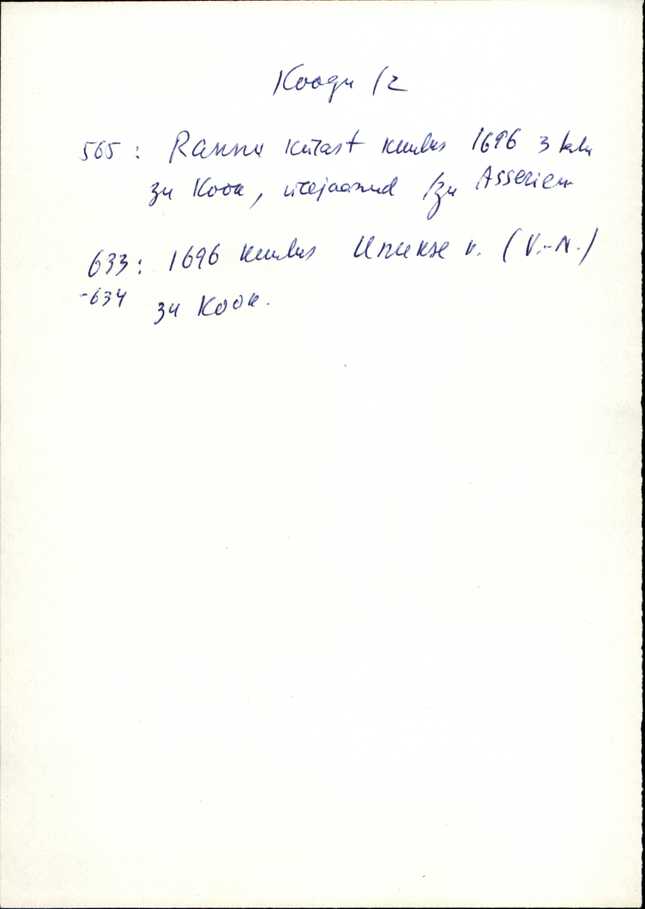 Koogu /2
565 : Rannu külast kuulus 1696 3 talu
zu Kook, ülejäänud /zu Asserien
633 : 1696 kuulus Unukse v. (V.-N.)
-634 zu Kook.